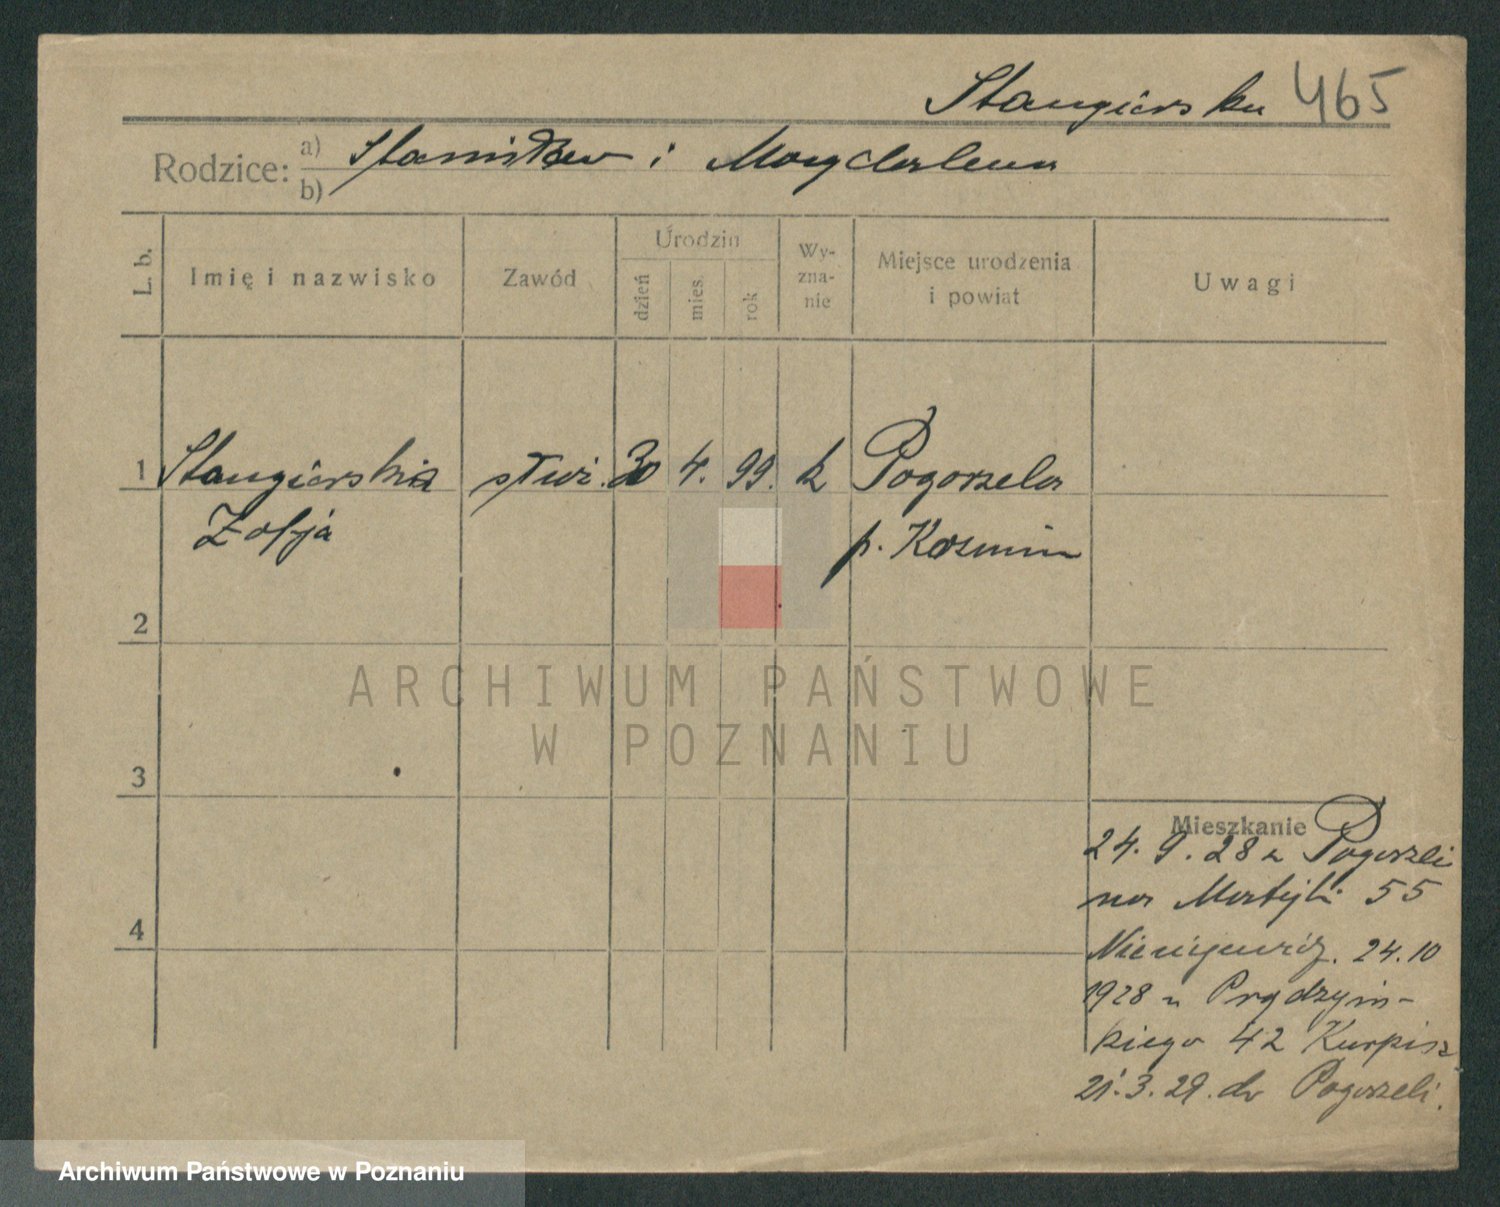 Stangierska 465
Rodzice: a) Stanisław i Magdalena
b)
L. b. Imię i nazwisko Zawód Urodzin dzień mies. rok Wy-zna-nie Miejsce urodzenia i powiat Uwagi
1 Stangierska służ. 30 4. 99. k Pogorzela
Zofja p. Kozmin
2
ARCHIWUM PAŃSTWOWE
W POZNANIU
3
Mieszkanie
24. 9. 28 z Pogorzeli
na Matejki 55
24.10
1928 n Prądzyń-
kiego 42 Kurpisz
21.3.29. do Pogorzeli.
4
Archiwum Państwowe w Poznaniu